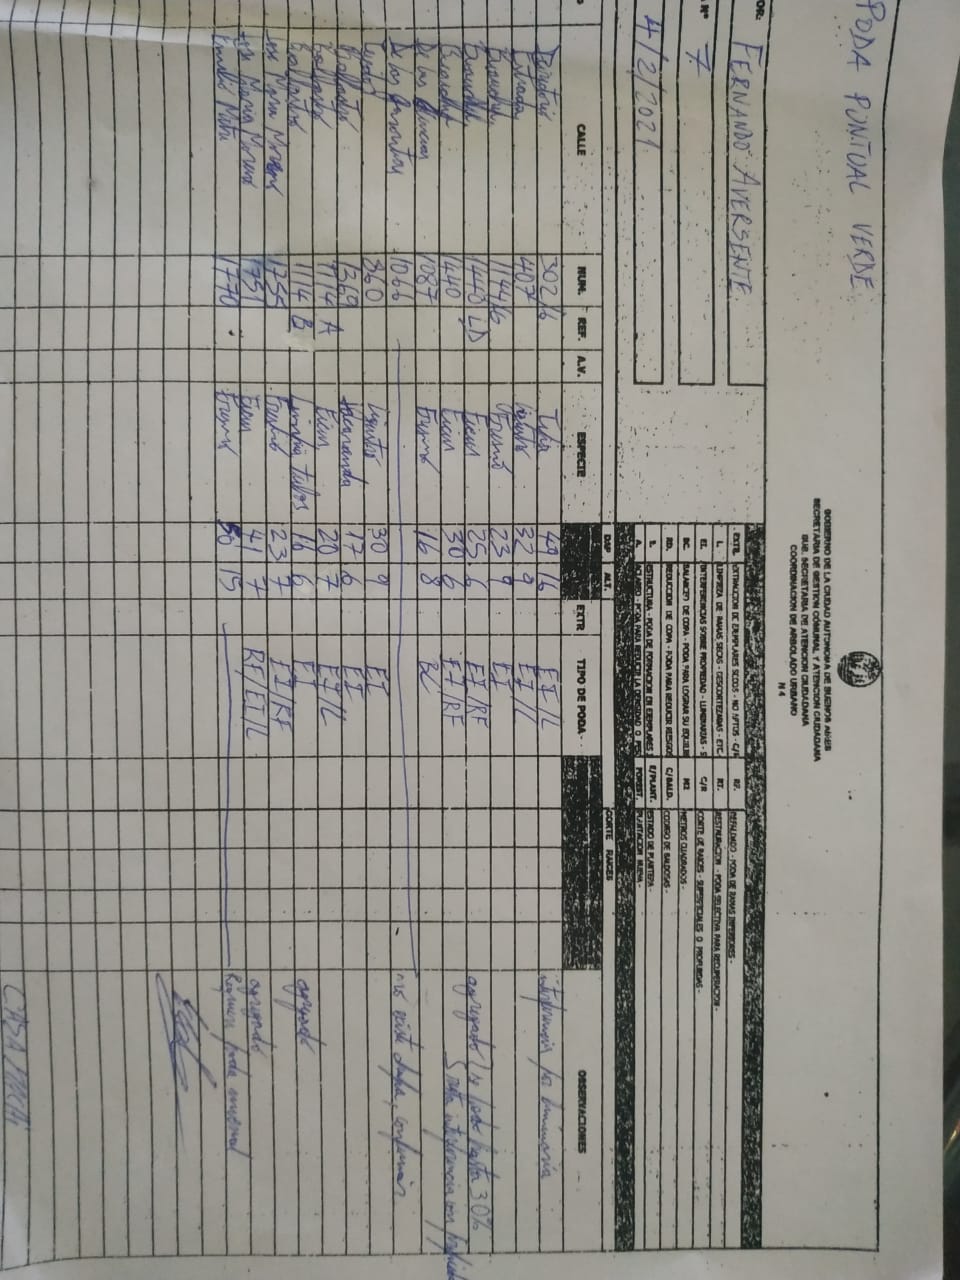 PODA PUNTUAL VERDE
GOBIERNO DE LA CIUDAD AUTONOMA DE BUENOS AIRES
SECRETARIA DE GESTION COMUNAL Y ATENCION CIUDADANA
SUB. SECRETARIA DE ATENCION CIUDADANA
COORDINACION DE ARBOLADO URBANO
N 4
TOR: FERNANDO AVERSENTE
Nº 7
4/2/2021
EXTR. EXTRACCION DE EJEMPLARES SECOS - NO APTOS - C/R RF. REFALDADO - PODA DE RAMAS INFERIORES -
L. LIMPIEZA DE RAMAS SECAS - DESCORTEZADAS - ETC. RT. RESTAURACION - PODA SELECTIVA PARA RECUPERACION -
EI. INTERFERENCIAS SOBRE PROPIEDAD - LUMINARIAS - S C/R CORTE DE RAICES - SUPERFICIALES O PROFUNDAS -
BC. BALANCEO DE COPA - PODA PARA LOGRAR SU EQUILIB M2 METROS CUADRADOS -
RD. REDUCCION DE COPA - PODA PARA REDUCIR RIESGOS C/BALD. CODIGO DE BALDOSAS -
E. ESTRUCTURA - PODA DE FORMACION EN EJEMPLARES E/PLANT. ESTADO DE PLANTERA -
A. ACLAREO - PODA PARA REDUCIR LA DENSIDAD O PES FOREST. PLANTACION NUEVA -
DAP ALT. CORTE RAICES
CALLE NUM. REF. A.V. ESPECIE EXTR TIPO DE PODA OBSERVACIONES
Directorio 302/6 Tilia 49 16 EI/L interferencia por luminaria
Estrada 407 Ligustro 32 9 EI/L
1144/6 Fresno 23 9 EI
1440 LD Ficus 25 6 EI/RF agregado se podo hasta 30%
1440 Ficus 30 6 EI/RF resta interferencia con
De las Ciencias 1087 Fresno 16 8 BC
De las Garantias 1066 no existe chapa, confirmar
Tejedor 860 Ligustro 30 9 EI
Balbastro 1269 Jacaranda 17 6 EI
Balbastro 1114 A Ficus 20 7 EI/L
Balbastro 1114 B Limpia tubos 16 6 EI agregado
Jose Maria Moreno 1755 Fresno 23 7 EI/RF
Jose Maria Moreno 1751 Ficus 41 7 RF/EI/L agregado
Emilio Mitre 1770 Fresno 50 15 Requiere poda invernal
CASA